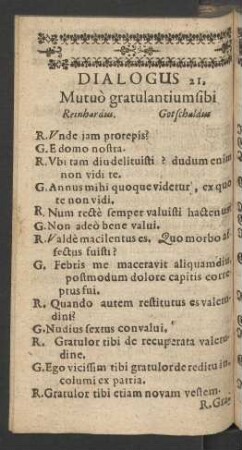 DIALOGUS 21.
Mutuò gratulantium sibi
Reinhardus. Gotschaldus
R. Vnde jam prorepis?
G. E domo nostra.
R. Vbi tam diu delituisti? dudum enim
non vidi te.
G. Annus mihi quoque videtur, ex quo
te non vidi.
R. Num rectè semper valuisti hactenus?
G. Non adeò bene valui.
R. Valdè macilentus es, Quo morbo af-
fectus fuisti?
G. Febris me maceravit aliquamdiu,
postmodum dolore capitis corre-
ptus fui.
R. Quando autem restitutus es valetu-
dini?
G. Nudius sextus convalui.
R. Gratulor tibi de recuperata valetu-
dine.
G. Ego vicissim tibi gratulor de reditu in-
columi ex patria.
R. Gratulor tibi etiam novam vestem.